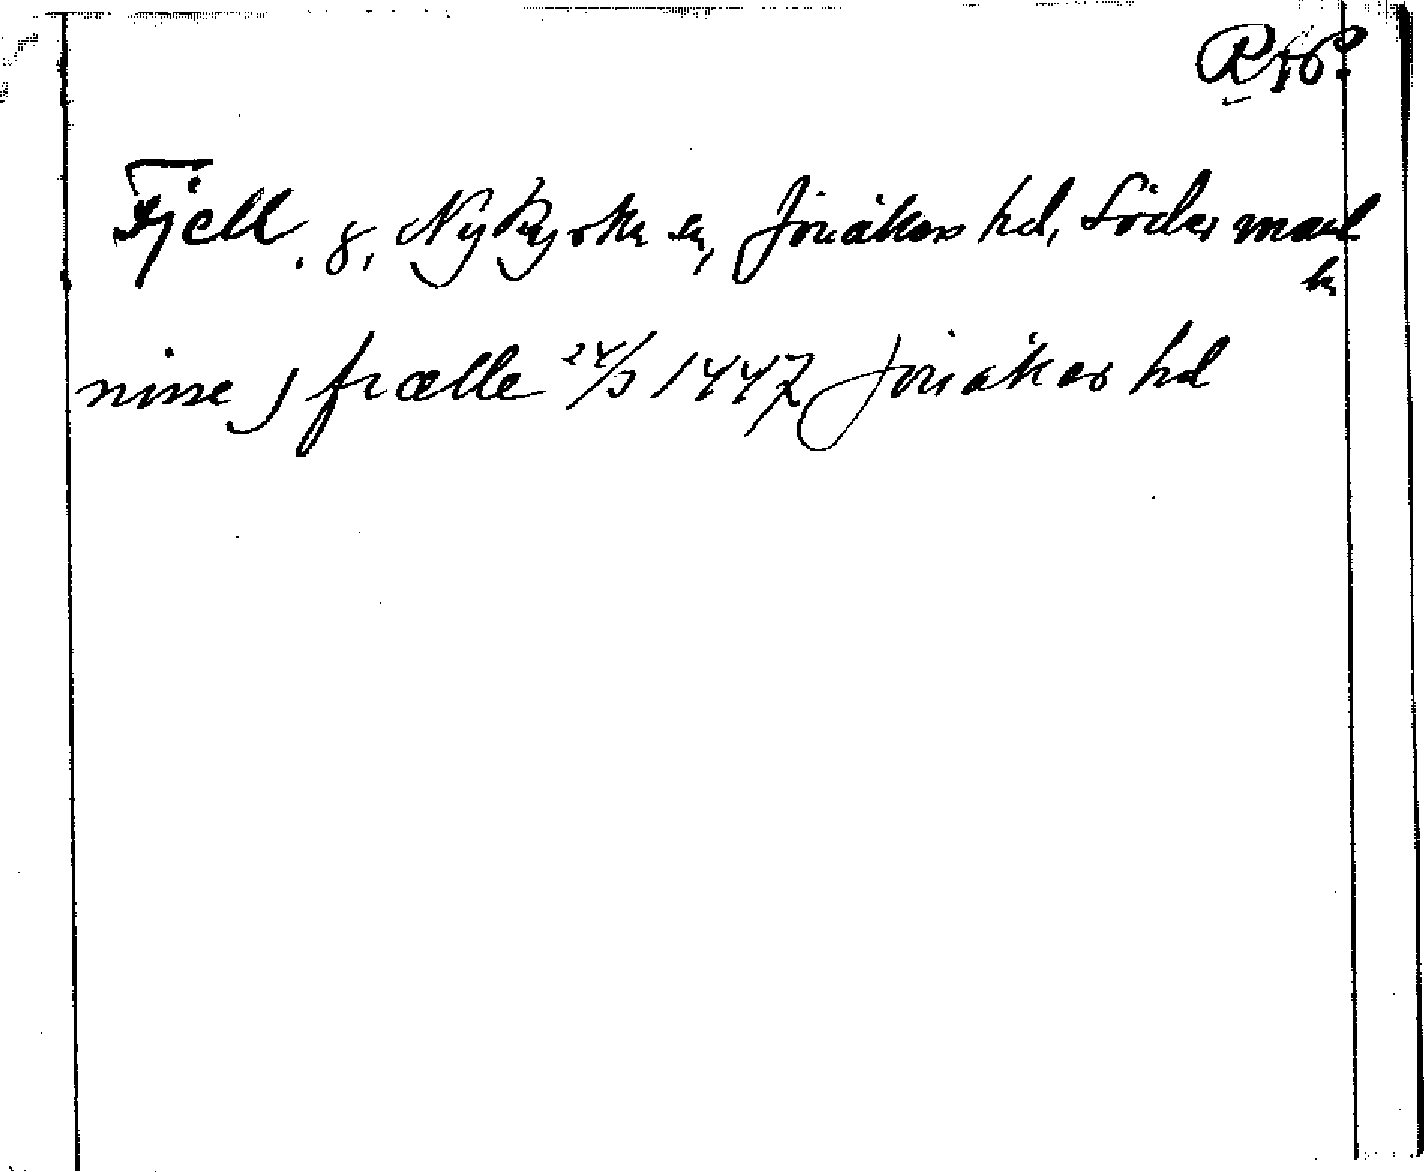 Fjell, g, Nykyrka sn, Jönåkers hd, Söderman
l
nisse j fiælle 24/3 1447 Jönåkers hd